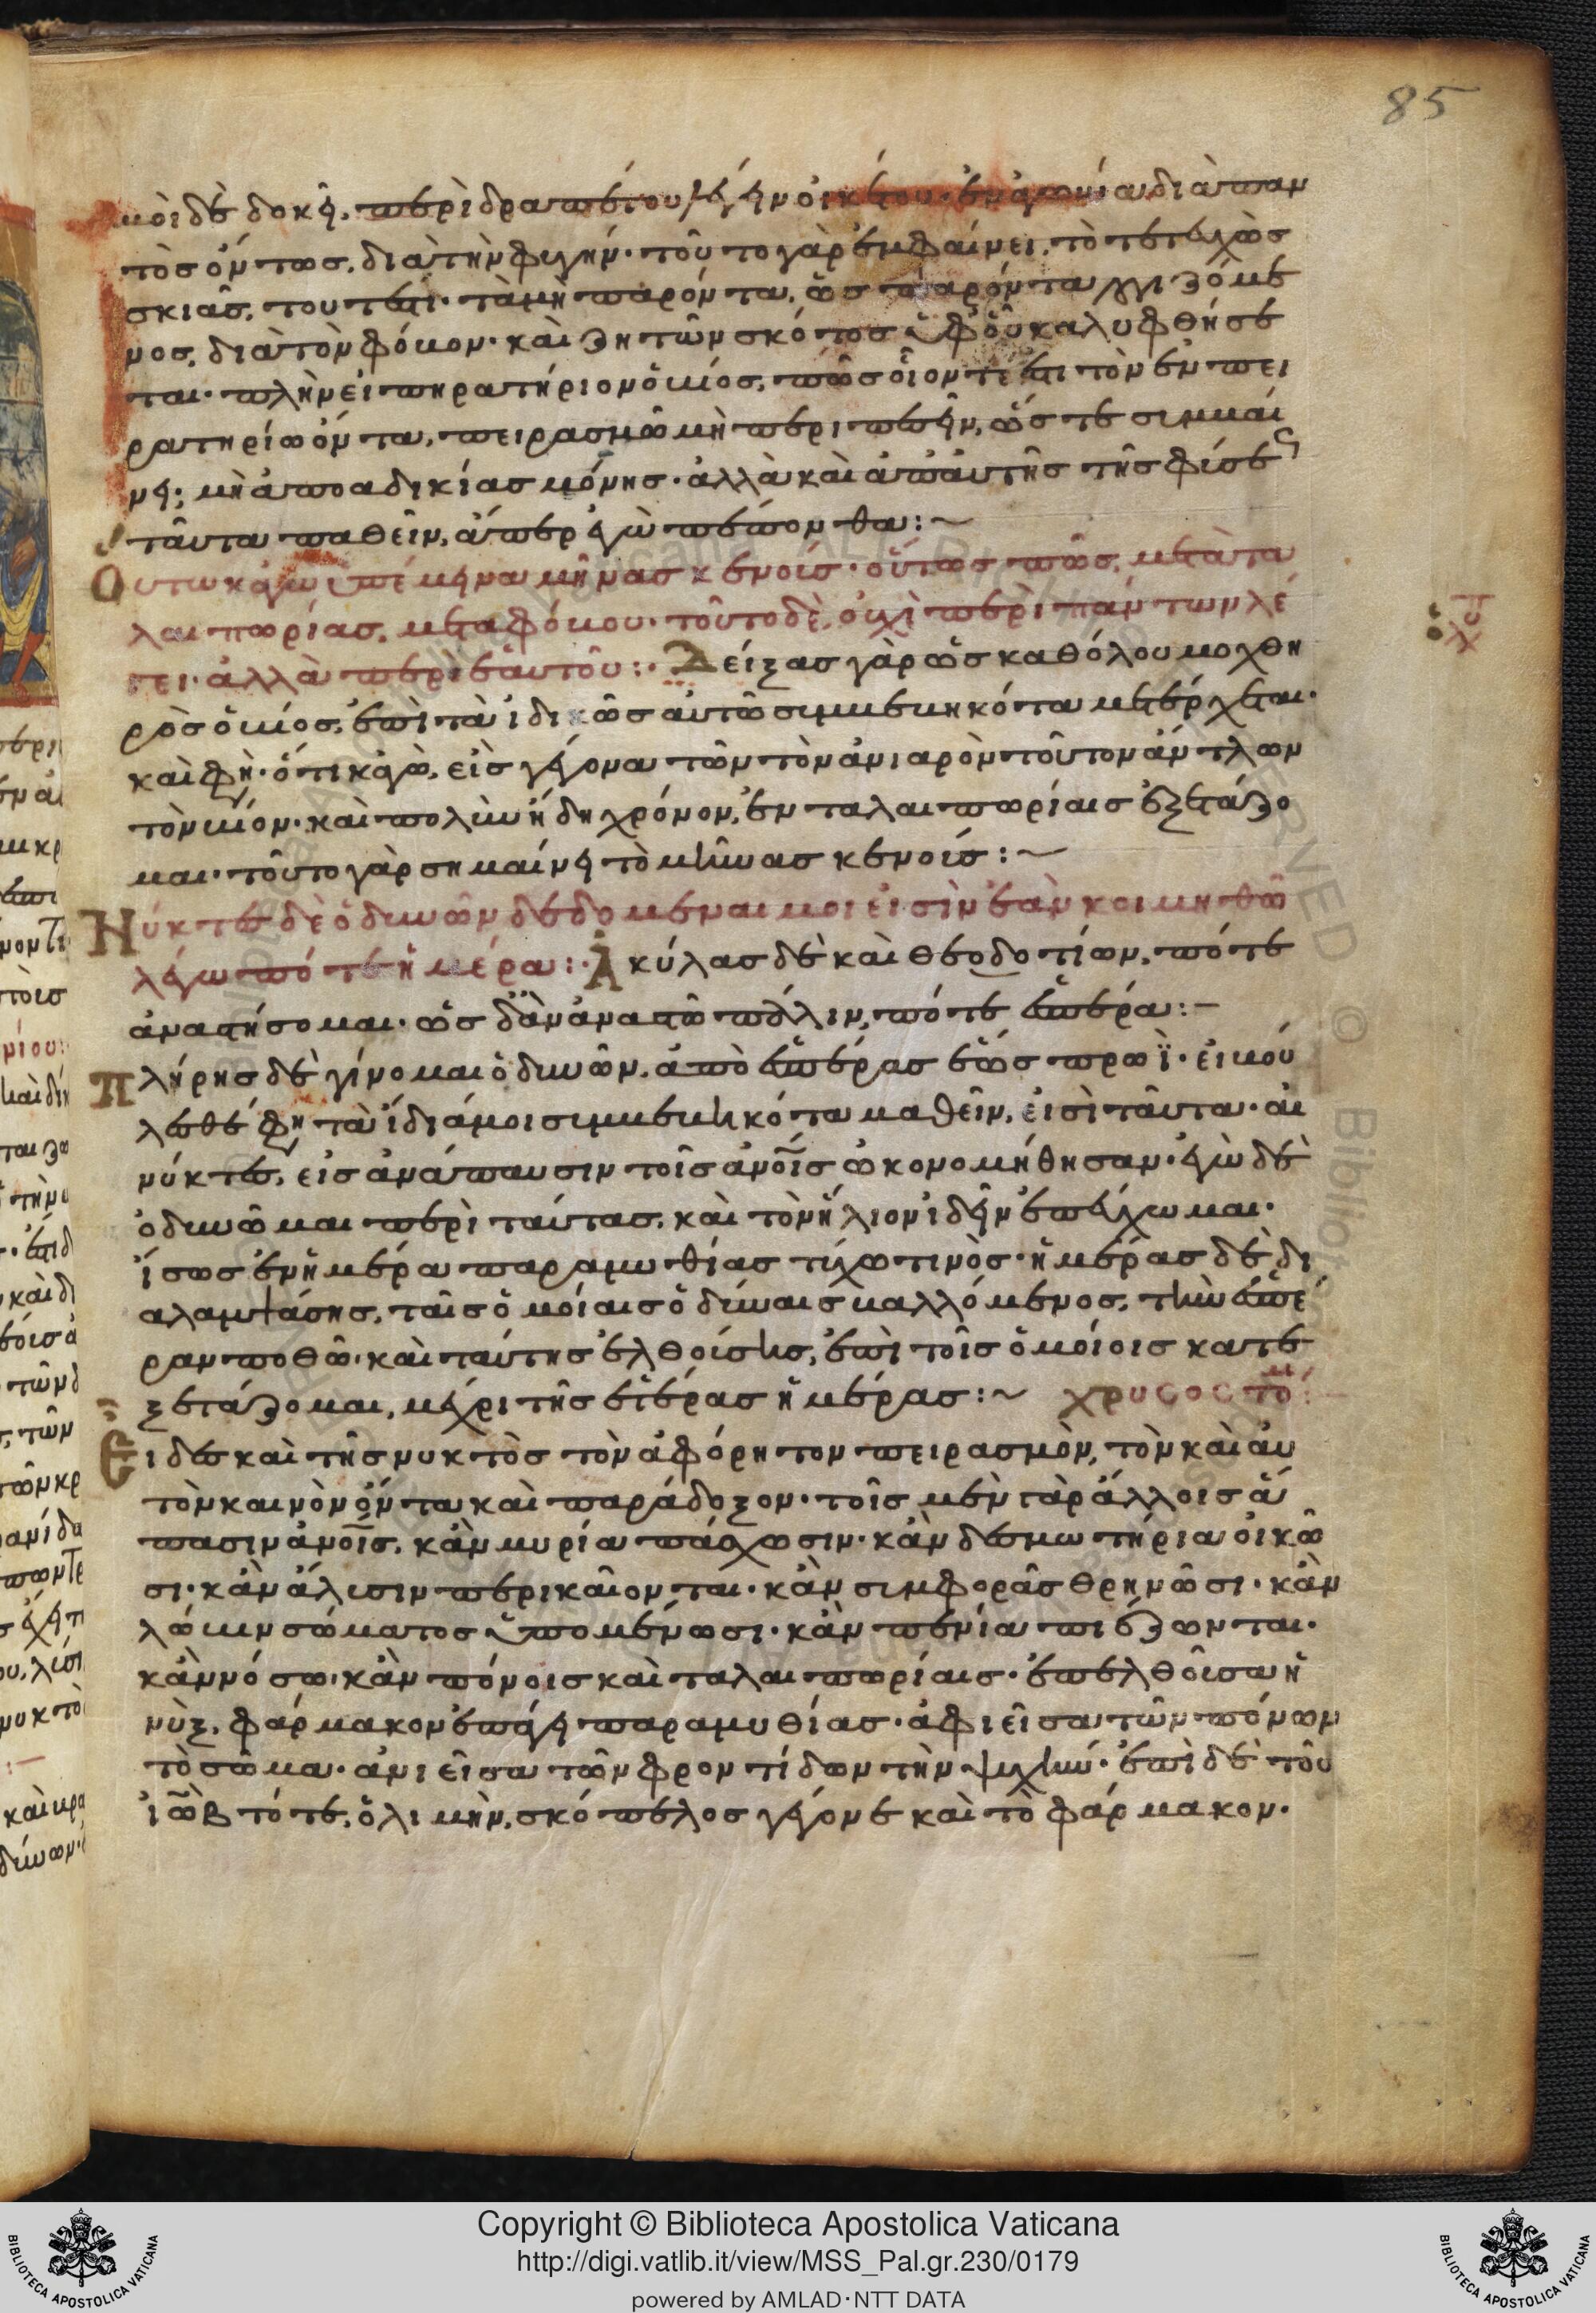 85
μοὶ δὲ δοκεῖ, περὶ δραπέτου λέγειν οἰκέτου· ἐν ἀγωνία διὰ παν
τὸς ὄντος, διὰ τὴν φυγήν· τοῦτο γὰρ ἐμφαίνει, τὸ τετευχὼς
σκιᾶς, τουτέστι· τὰ μὴ παρόντα, ὡς παρόντα λογιζόμε
νος, διὰ τὸν φόβον· καὶ ζητῶν σκότος ὑφ' οὗ καλυφθήσε
ται· πλὴν εἰ πηρατήριον ὁ βίος, πῶς οἷον τέ ἐστι τὸν ἐν πει
ρατηρίω ὄντα, πειρασμῶ μὴ περιπεσεῖν, ὥστε συμβαί
νει; μὴ ἀπο αδικίας μόνης· ἀλλὰ καὶ ἀπ' αὐτῆς τῆς φύσεως
ταῦτα παθεῖν, ἅπερ ἐγὼ πέπονθα:~
Ούτω κἀγὼ υπέμεινα μῆνας κενούς· οὕτως πῶς, μετὰ τα
λαιπωρίας, μετα φόβου· τοῦτο δὲ, οὐχὶ περὶ πάντων λέ
γει· ἀλλὰ περὶ ἑαυτοῦ:· Δείξας γὰρ ὡς καθόλου μοχθη
ρὸς ὁ βίος, ἐπὶ τὰ ἰδικῶς αὐτῶ συμβεβηκότα μετέρχεται·
καὶ φη· ὅτι κἀγὼ, εἷς γέγονα τῶν τὸν ἀνιαρὸν τοῦτον ἀντλων
τὸν βίον· καὶ πολὺν ἤδη χρόνον, ἐν ταλαιπωρίαις ἐξετάζο
μαι· τοῦτο γὰρ σημαίνει τὸ μῆνας κενούς:~
Νύκτες δὲ ὀδυνῶν δεδομεναι μοι εἰσὶν ἐὰν κοιμηθῶ
λέγω πότε ἡμέρα:· Ἀκύλας δὲ καὶ Θεοδοτίων, πότε
ἀναστήσομαι· ὡς δ' ἂν ἀναστῶ πάλιν, πότε ἑσπέρα:–
Πλήρης δὲ γίνομαι ὀδυνῶν, ἀπὸ ἑσπέρας ἕως πρωΐ· εἰ βού
λεσθέ φη τὰ ἰδιά μοι συμβεβηκότα μαθεῖν, εἰσὶ ταῦτα· αἱ
νύκτες, εἰς ἀνάπαυσιν τοῖς ἀνοῖς ὠκονομήθησαν· ἐγὼ δὲ
ὀδυνῶμαι περὶ ταύτας, καὶ τὸν ἥλιον ἰδεῖν ἐπεύχωμαι·
ἵσως ἐν ἡμέρα παραμυθίας τύχω τινὸς· ἡμέρας δὲ δι
αλαμψάσης, ταῖς ὁμοίαις ὀδύναις βαλλόμενος, τὴν ἑσπέ
ραν ποθῶ· καὶ ταύτης ἐλθούσης, ἐπὶ τοῖς ὁμοίοις κατε
ξετάζομαι, μέχρι τῆς ἑτέρας ἡμέρας:~ χρυσοστο
Εἶδες καὶ τῆς νυκτὸς τὸν ἀφόρητον πειρασμὸν, τὸν καὶ αὐ
τὸν καινὸν ὄντα καὶ παράδοξον· τοῖς μὲν γὰρ ἄλλοις ἅ
πασιν ἀνοῖς, κἂν μυρία πάσχωσιν· κἂν δεσμωτήρια οἰκῶ
σι· κἂν ἁλυσιν περικαῖονται· κἂν συμφορᾶς θρηνῶσι· κἂν
λώβην σώματος ὑπομένωσι· κἂν πενία πιέζωνται·
κἂν νόσω· κἂν πόνοις καὶ ταλαιπωρίαις· ἐπελθοῦσα ἡ
νὺξ, φάρμακον ἐπάγει παραμυθίας· ἀφιεῖσα τῶν πόνων
τὸ σῶμα· ἀνιεῖσα τῶν φροντίδων τὴν ψυχὴν· ἐπὶ δὲ τοῦ
ἰὼβ τότε, ὁ λιμὴν, σκόπελος γέγονε καὶ τὸ φάρμακον·
Copyright © Biblioteca Apostolica Vaticana
http://digi.vatlib.it/view/MSS_Pal.gr.230/0179
powered by AMLAD·NTT DATA
BIBLIOTECA APOSTOLICA VATICANA
BIBLIOTECA APOSTOLICA VATICANA